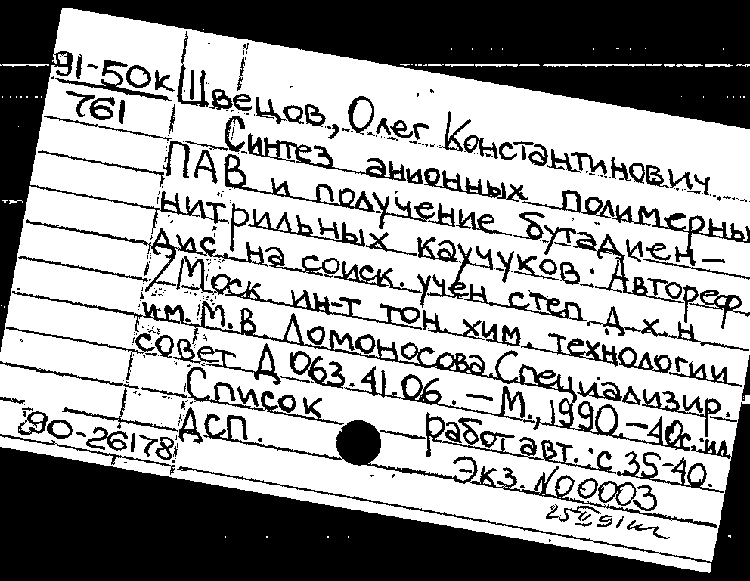 91-50к
761
Швецов, Олег Константинович.
Синтез анионных полимерны
ПАВ и получение бутадиен-
нитрильных каучуков: Автореф.
дис. на соиск. учен. степ. д.х.н.
/Моск. ин-т тон. хим. технологии
им. М.В. Ломоносова. Специализир.
совет Д 063.41.06. - М., 1990. - 40с.: ил.
Список работ авт.: с. 35-40.
ДСП. Экз. N00003
90-26178